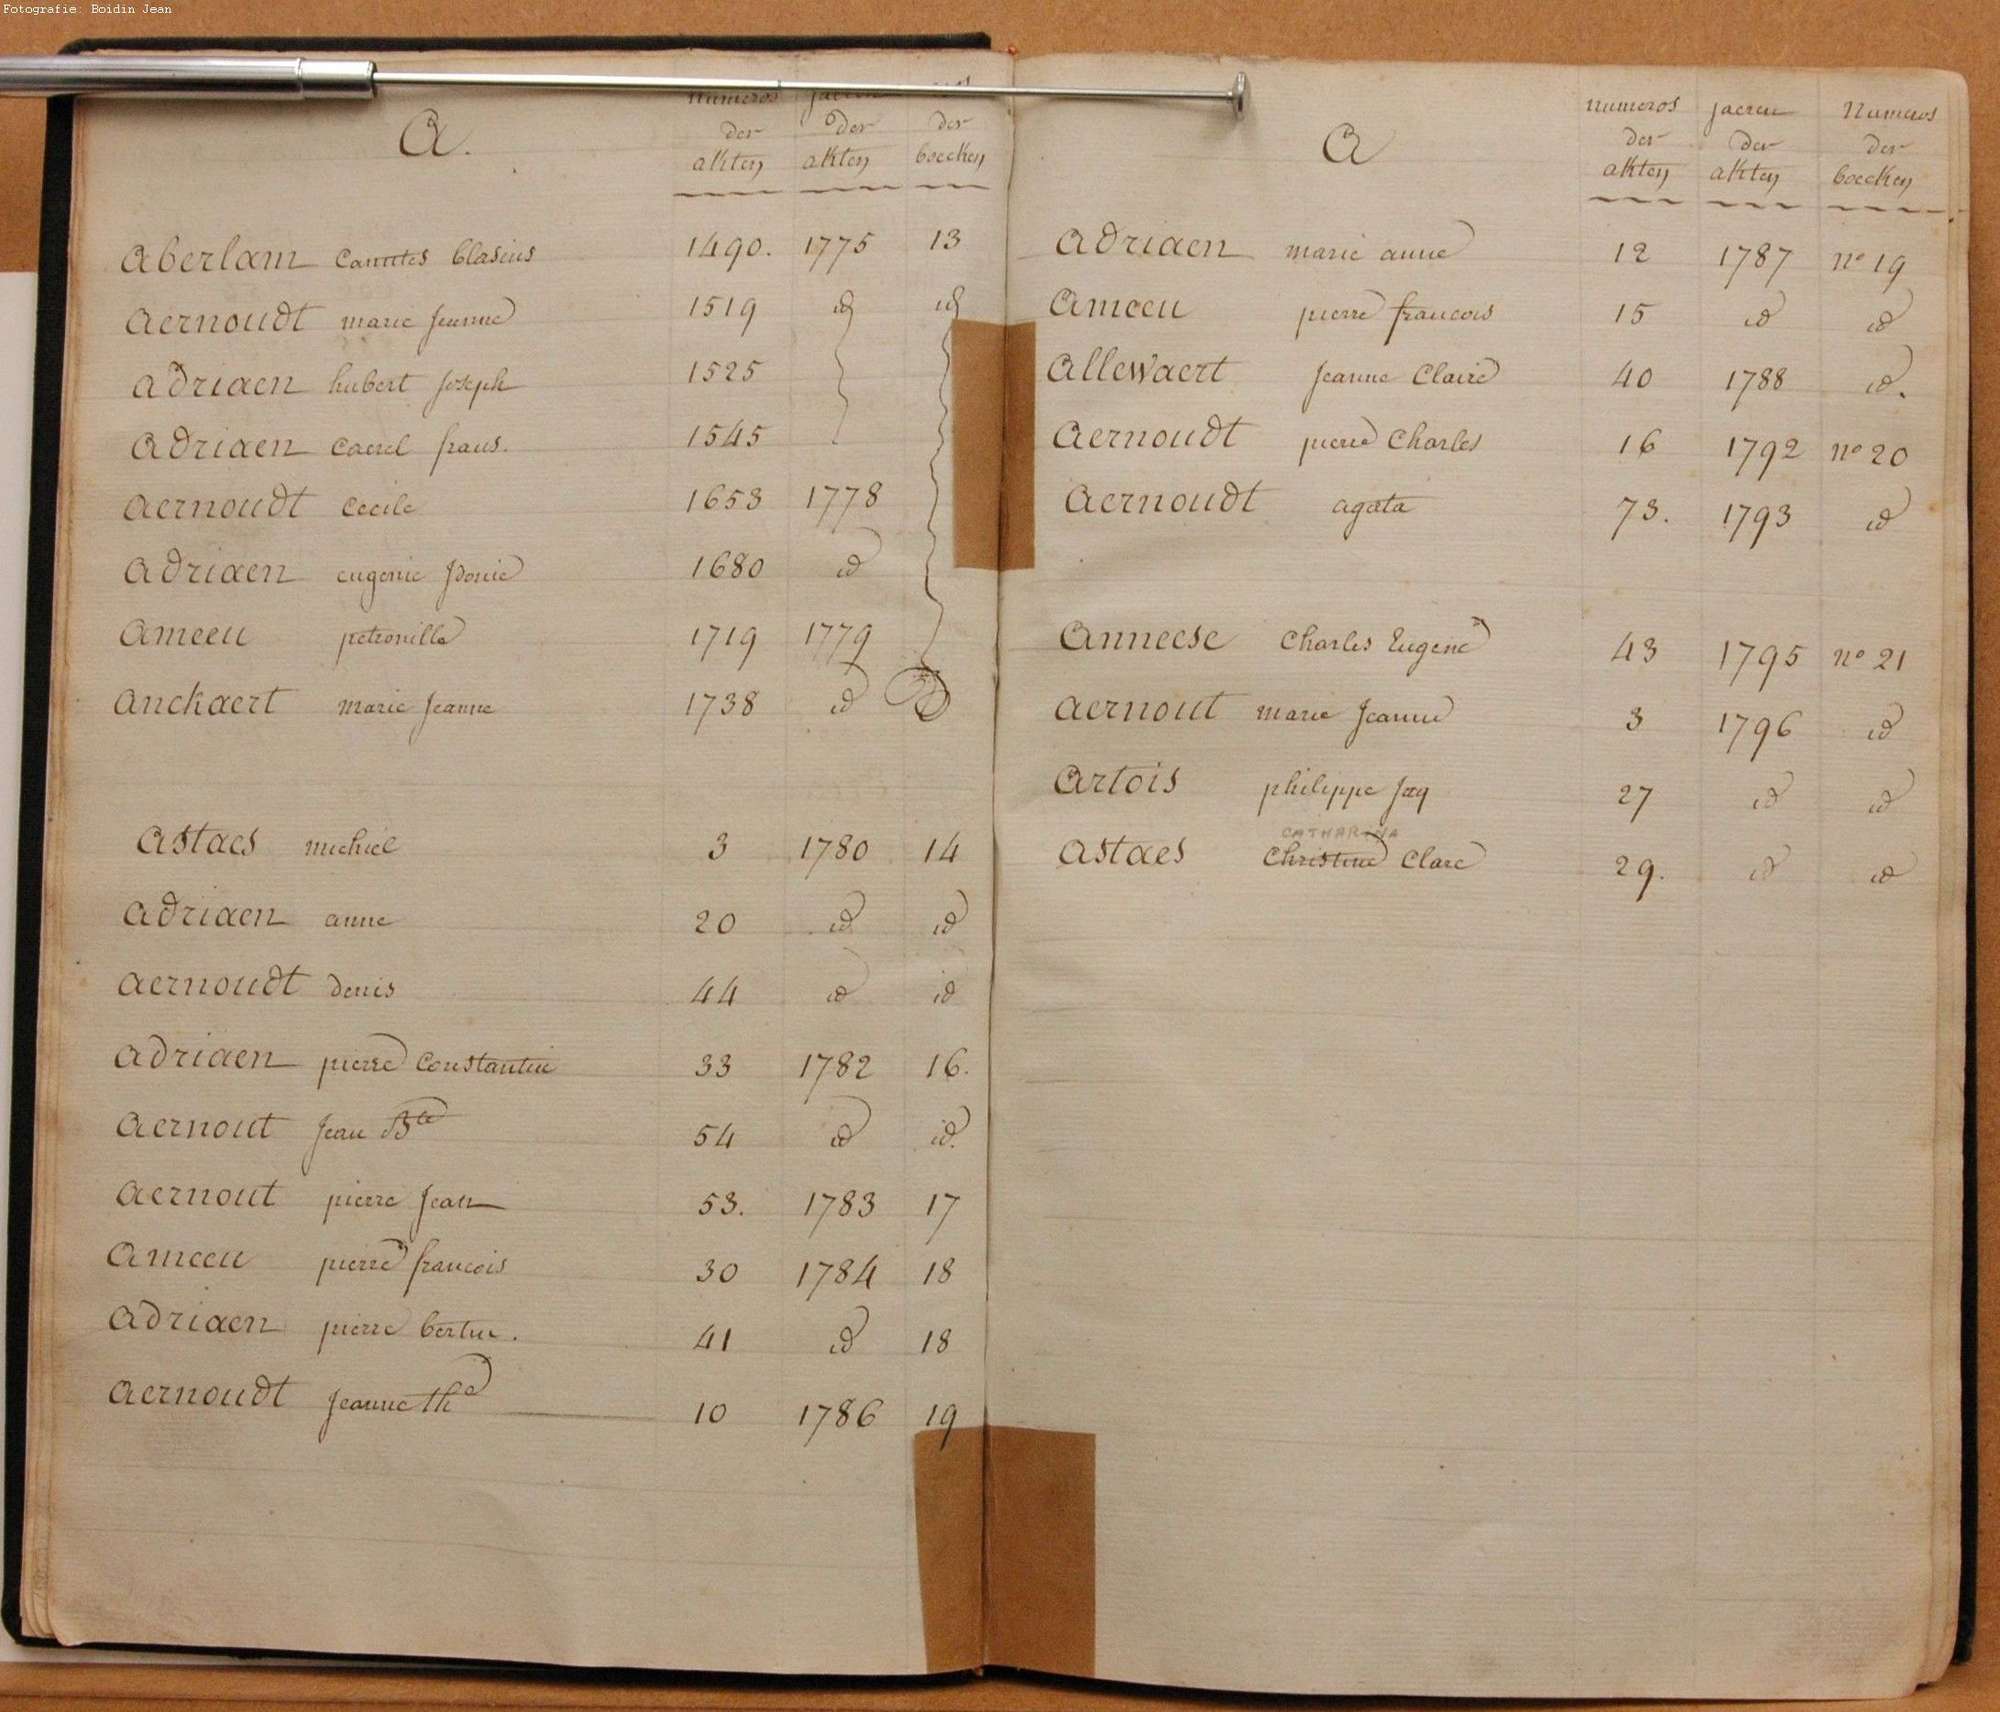 Fotografie: Boidin Jean
A.
numeros jaeren
der der der
akten akten boecken
Aberlam Canutes blasius 1490. 1775 13
Aernoudt marie Jeanne 1519 id id
Adriaen hubert Joseph 1525
Adriaen Carel frans. 1545
Aernoudt Cecile 1653 1778
Adriaen eugenie Idonie 1680 id
Ameeu petronille 1719 1779
Anckaert marie Jeanne 1738 id
Astaes michiel 3 1780 14
Adriaen anne 20 id id
Aernoudt denis 44 id id
Adriaen pierre Constantin 33 1782 16.
Aernout Jean Bte 54 id id.
Aernout pierre Jean 53. 1783 17
Ameeu pierre francois 30 1784 18
Adriaen pierre bertin. 41 id 18
Aernoudt Jeanne The 10 1786 19
A
numeros jaeren Numeros
der der der
akten akten boecken
Adriaen marie anne 12 1787 no 19
Ameeu pierre francois 15 id id
Allewaert Jeanne Claire 40 1788 id.
Aernoudt pierre Charles 16 1792 no 20
Aernoudt agata 73. 1793 id
Anneese Charles Eugene 43 1795 no 21
Aernout marie Jeanne 3 1796 id
Artois philippe Jaq 27 id id
CATHARINA
Astaes Christine Clare 29. id id